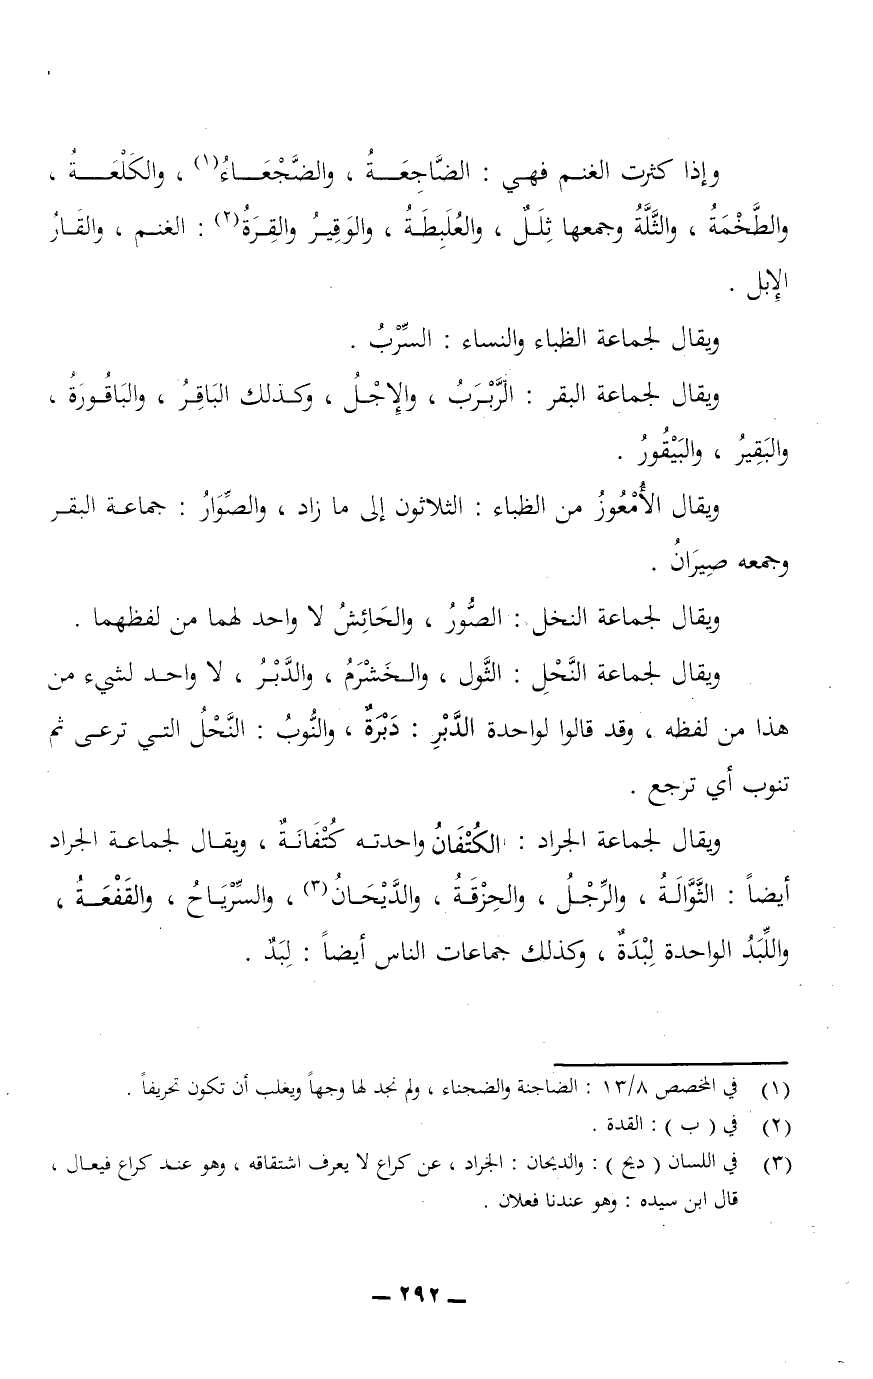 وإذا كثرت الغنم فهي : الضَّاجِعَةُ ، والضَّجْعَاءُ(١) ، والكَلْعَةُ ،
والطَّخْمَةُ ، والثَّلَّةُ وجمعها ثِلَلٌ ، والعُلَبِطَةُ ، والوَقِيرُ والقِرَةُ(٢) : الغنم ، والقَارُ
الإبل .
ويقال لجماعة الظباء والنساء : السِّرْبُ .
ويقال لجماعة البقر : الرَّبْرَبُ ، والإِجْلُ ، وكذلك البَاقِرُ ، والبَاقُورَةُ ،
والبَقِيرُ ، والبَيْقُورُ .
ويقال الأُمْعُوزُ من الظباء : الثلاثون إلى ما زاد ، والصِّوَارُ : جماعة البقر
وجمعه صِيرَانُ .
ويقال لجماعة النخل : الصَّورُ ، والحَائِشُ لا واحد لهما من لفظهما .
ويقال لجماعة النَّحْلِ : الثَّول ، والخَشْرَمُ ، والدَّبْرُ ، لا واحد لشيء من
هذا من لفظه ، وقد قالوا لواحدة الدَّبْرِ : دَبْرَةٌ ، والنُّوبُ : النَّحْلُ التي ترعى ثم
تنوب أي ترجع .
ويقال لجماعة الجراد : الكُتْفَانُ واحدته كُتْفَانَةٌ ، ويقال لجماعة الجراد
أيضاً : الثَّوَّالَةُ ، والرِّجْلُ ، والحِزْقَةُ ، والدَّيْحَانُ(٣) ، والسِّرْيَاحُ ، والقَفْعَةُ ،
واللِّبَدُ الواحدة لِبْدَةٌ ، وكذلك جماعات الناس أيضاً : لِبَدٌ .
(١) في المخصص ١٣/٨ : الضاجنة والضجناء ، ولم نجد لها وجهاً ويغلب أن تكون تحريفاً .
(٢) في ( ب ) : القدة .
(٣) في اللسان ( ديح ) : والديحان : الجراد ، عن كراع لا يعرف اشتقاقه ، وهو عند كراع فيعال ،
قال ابن سيده : وهو عندنا فعلان .
ـ ٢٩٢ ـ